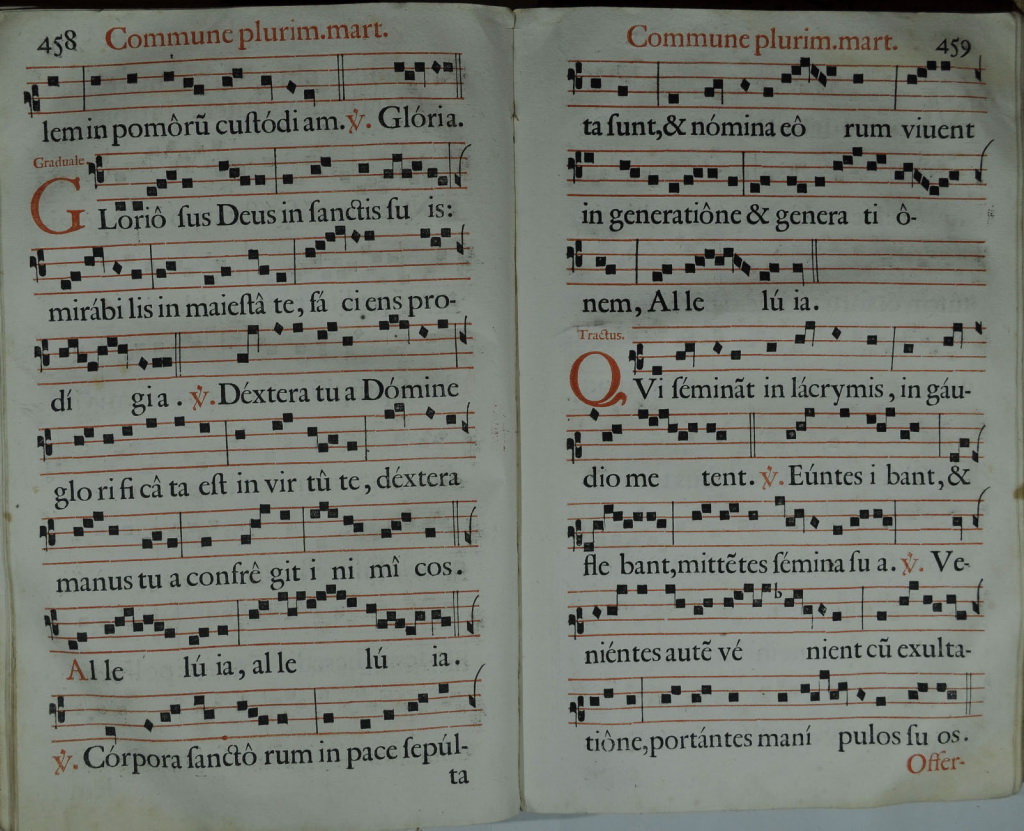 458 Commune plurim.mart.
lem in pomôrũ cuſtódi am. ℣. Glória.
Graduale
GLoriô ſus Deus in ſanctis ſu is:
mirábi lis in maieſtâ te, fá ci ens pro-
dí gi a. ℣. Déxtera tu a Dómine
glo ri fi câ ta eſt in vir tû te, déxtera
manus tu a confrê git i ni mî cos.
Al le lú ia, al le lú ia.
℣. Córpora ſanctô rum in pace ſepúl-
ta
Commune plurim.mart. 459
ta ſunt, & nómina eô rum viuent
in generatiône & genera ti ô-
nem, Al le lú ia.
Tractus.
QVi ſéminãt in lácrymis, in gáu-
dio me tent. ℣. Eúntes i bant, &
fle bant, mittẽtes ſémina ſu a. ℣. Ve-
niéntes autẽ vé nient cũ exulta-
tiône, portántes maní pulos ſu os.
Offer-